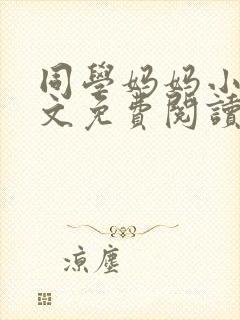 同學妈妈小
文免費閱讀
凉塵